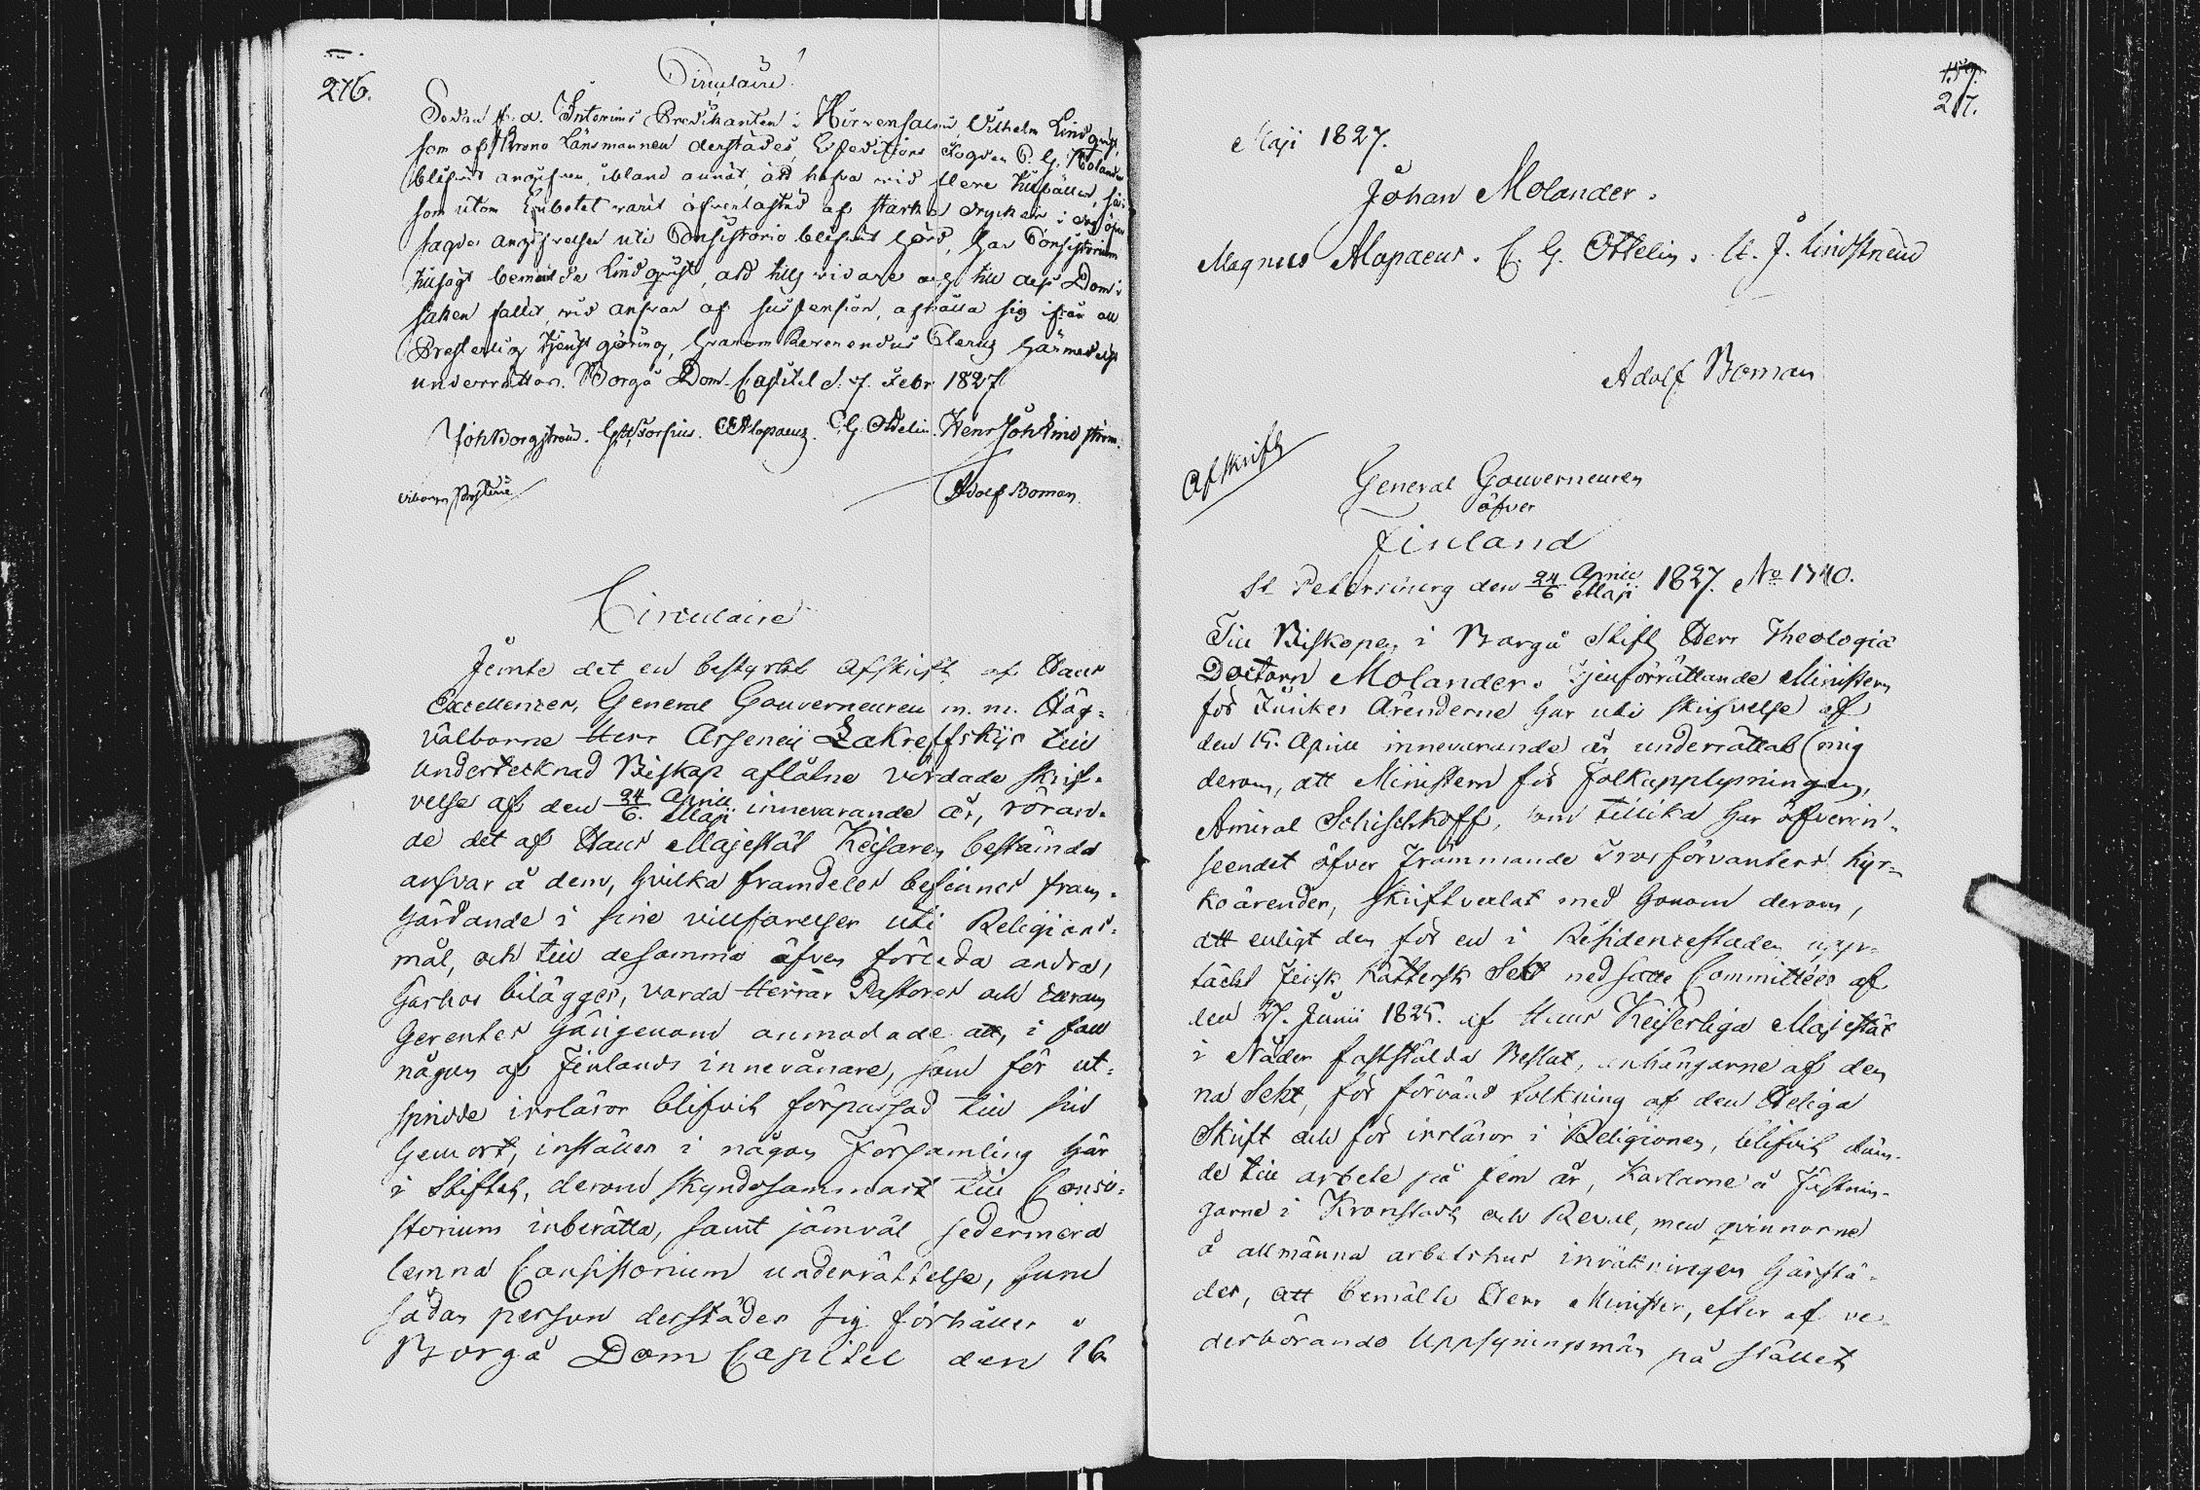 276.
Circulaire
Sedan t. a. Interims Predikanten i Hirvensalmi, Vilhelm Lindqvist,
som af Krono Länsmannen derstädes, Expeditions Fogden P. G. Molander
blifvit angifven, ibland annat, att hafva vid flere tillfällen, så i
som utom Embetet varit öfverlastad af starka drycker
sagde angifvelse uti Consistorio blifvit hörd, har Consistorium
tillsagt bemälde Lindqvist, att tills vidare och till dess Dom i
saken fallit, vid answar af suspension, afhålla sig ifrån all
Presterlig tjenstgöring, hvarom Reverendus Clerus härmedelst
underrättas. Borgå Dom-Capitel d. 7. Febr 1827
Joh Borgström. M Alopaeus. C. G. Ottelin. Henr Joh Lindström.
Adolf Boman.
Circulaire
Jemte det en bestyrkt afskrift af Hans
Excellences, General Gouverneuren m. m. Hög-
välborne Herr Arsenéij Zakreffskijs till
undertecknad Biskop aflåtne vördade skrif-
velse af den 24 Aprill / 6. Maji innevarande år, röran-
de det af Hans Majestät Kejsaren bestämda
ansvar å dem, hvilka framdeles befinnas fram-
härdande i sine villfarelser uti Religions-
mål, och till desamma äfven förleda andra,
härhos bilägges, varda Herrar Pastores och deras
Gerenter härigenom anmodade att, i fall
någon af Finlands innevånare, som för ut-
spridde irrläror blifvit förpassad till sin
hemort, inställer i någon Församling här
i Stiftet, derom skyndsammast till Consi-
storium inberätta, samt jämväl sedermera
lemna Consistorium underrättelse, huru
sådan person derstädes sig förhåller.
Borgå Dom Capitel den 16
217.
Maji 1827.
Johan Molander.
Magnus Alopaeus. C. G. Ottelin. H. J. Lindström
Adolf Boman
Afskrift
General Gouverneuren
öfver
Finland
St Petersburg den 24 Aprill / 6 Maji 1827. No 1740.
Till Biskopen i Borgå Stift Herr Theologiæ
Doctorn Molander. Tjenförrättande Ministern
för Inrikes Ärenderne har uti skrifvelse af
den 15. Aprill innevarande år underrättat mig
derom, att Ministern för Folkupplysningen,
Amiral Schischkoff, som tillika har öfverin-
seendet öfver Främmande Trosförvanters Kyr-
koärender, skriftvexlat med honom derom,
att enligt den för en i Residencestaden upp-
täckt Finsk Kättersk Sekt nedsatte Committées af
den 27. Junii 1825. af Hans Kejserliga Majestät
i Nåder fastställda Beslut, anhängarne af den
na Sekt, för förvänd tolkning af den Heliga
Skrift och för irrläror i Religionen, blifvit döm-
de till arbete på fem år, Karlarne å Fästnin-
garne i Kronstadt och Reval, men qvinnorne
å allmänna arbetshus inrättningen härstä-
des, att bemälte Herr Minister, efter af ve-
derbörande Uppsyningsmän på stället